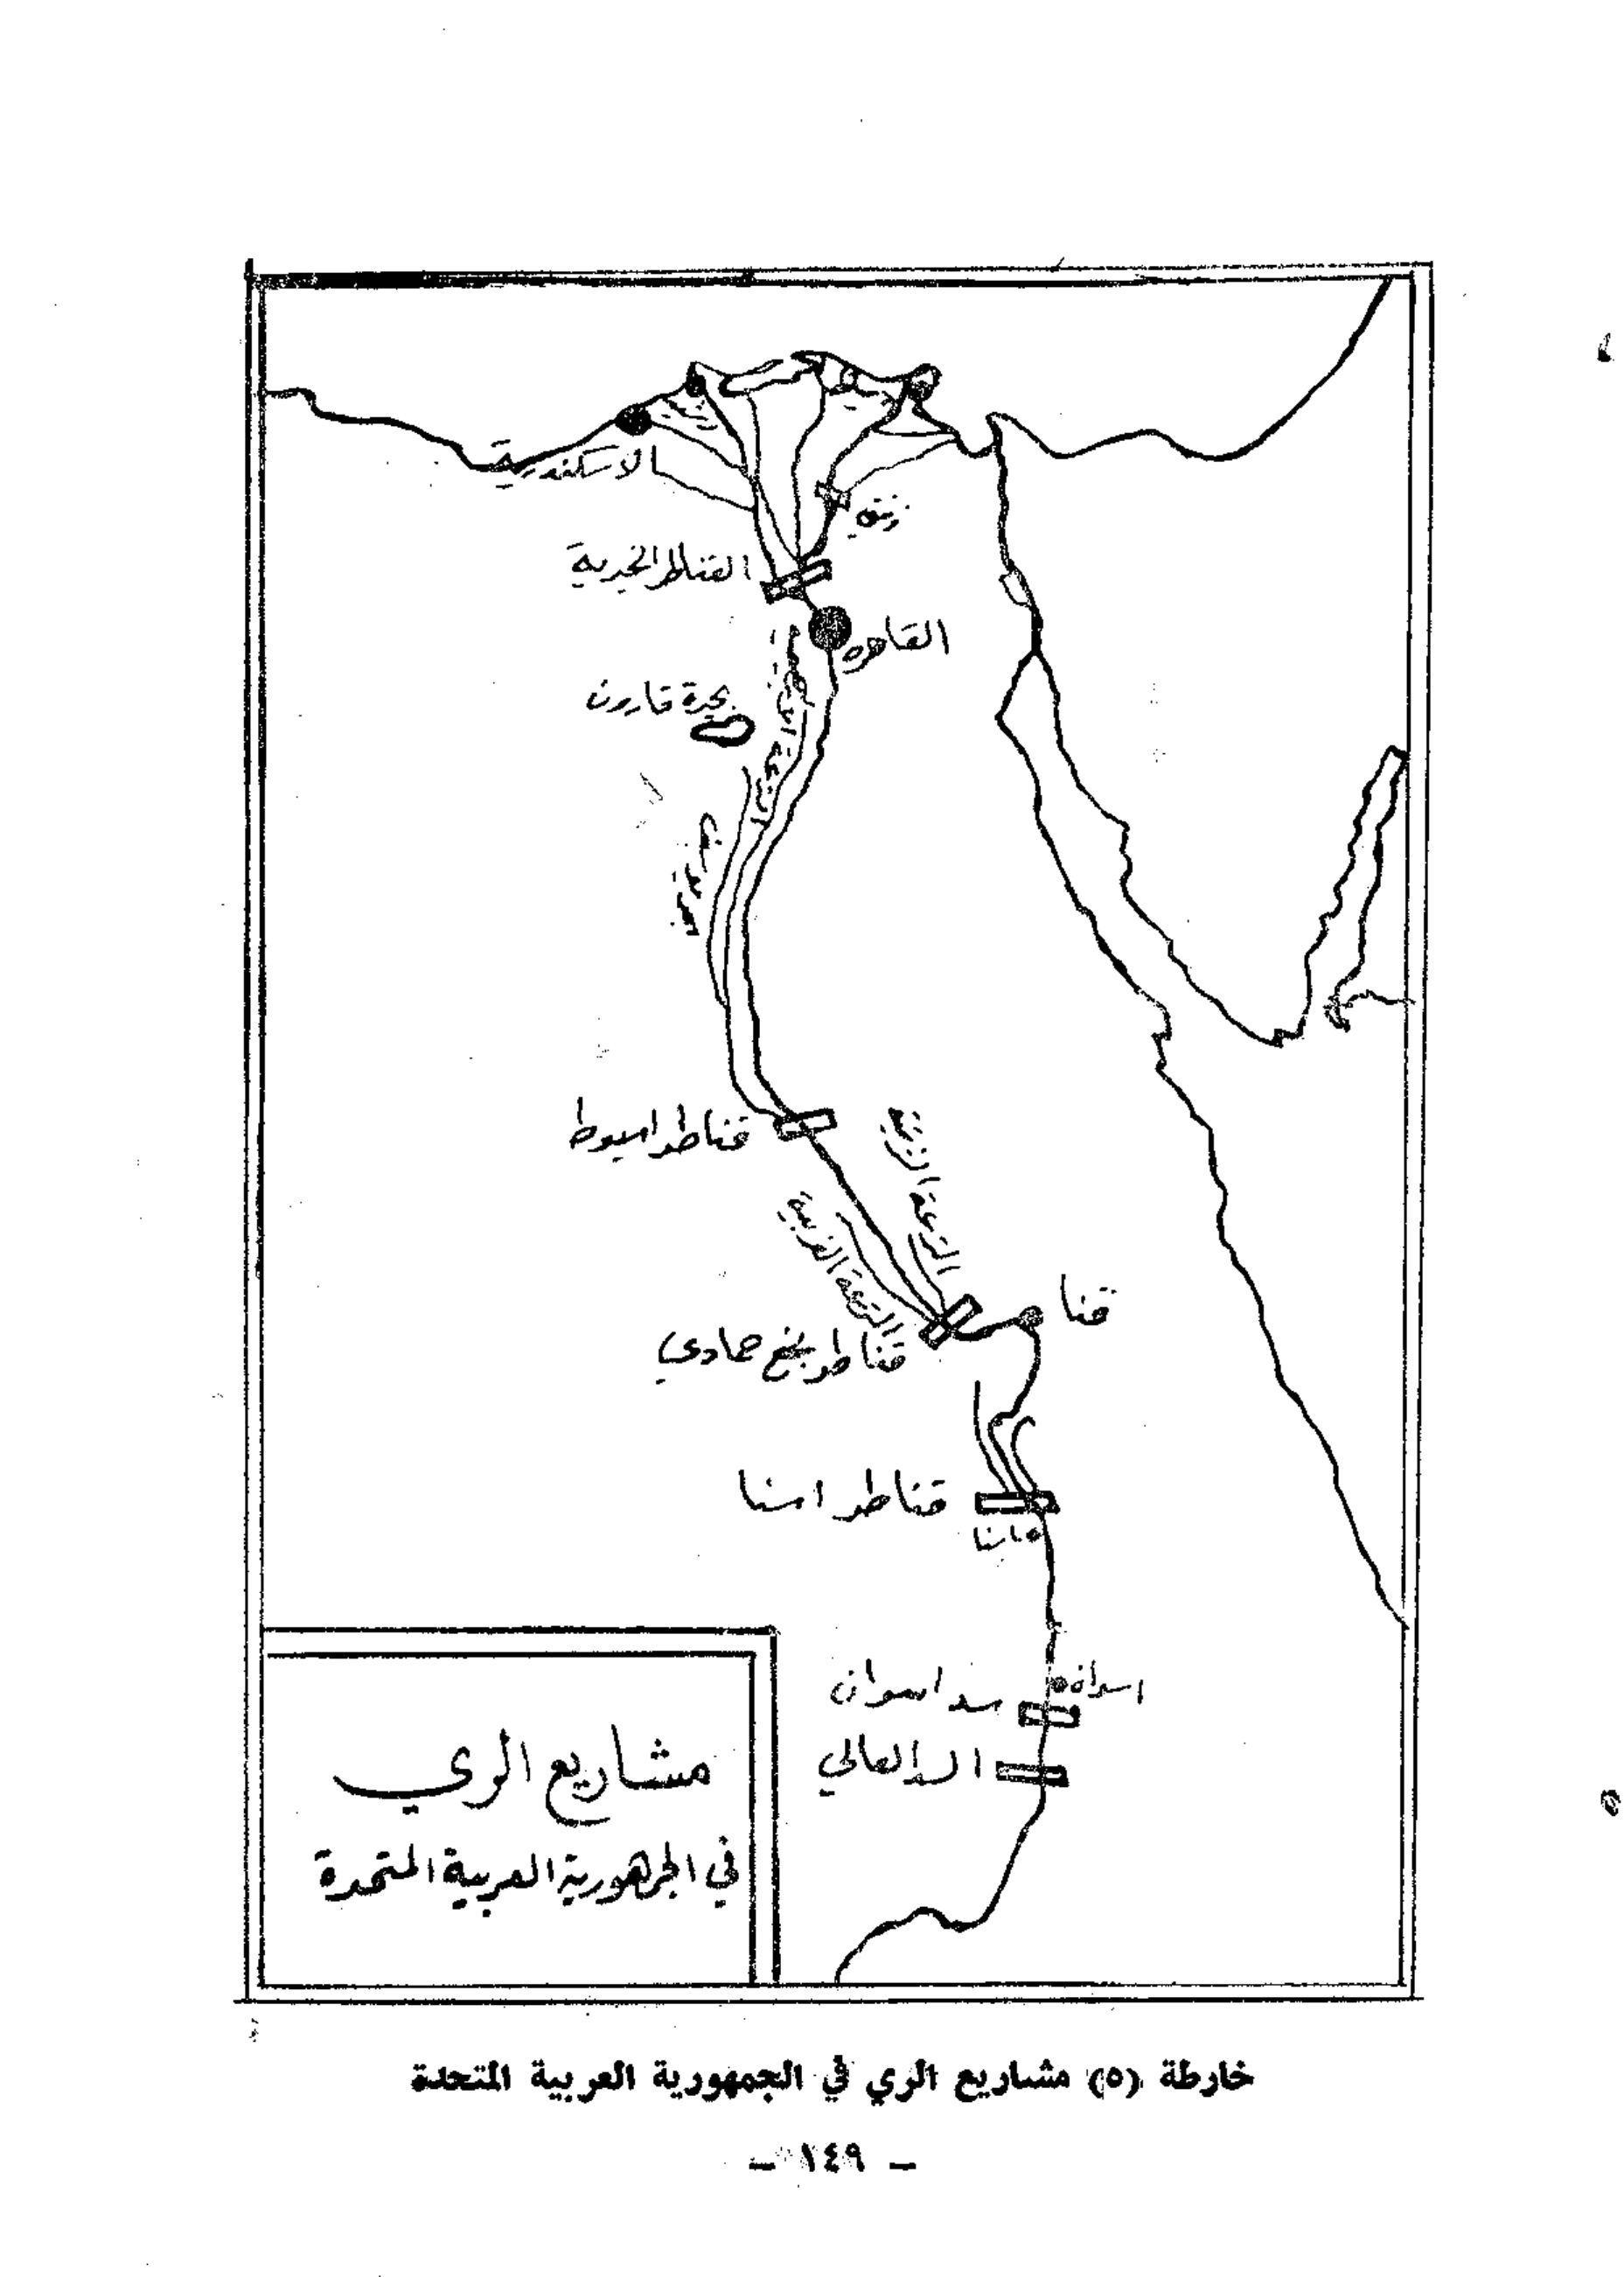 الاسكندرية
زفتى
القناطر الخيرية
القاهرة
بحيرة قارون
قناطر اسيوط
الترعة الغربية
قنا
قناطر نجع حمادي
قناطر اسنا
اسنا
اسوان
سد اسوان
السد العالي
مشاريع الري
في الجمهورية العربية المتحدة
خارطة (٥) مشاريع الري في الجمهورية العربية المتحدة
– ١٤٩ –